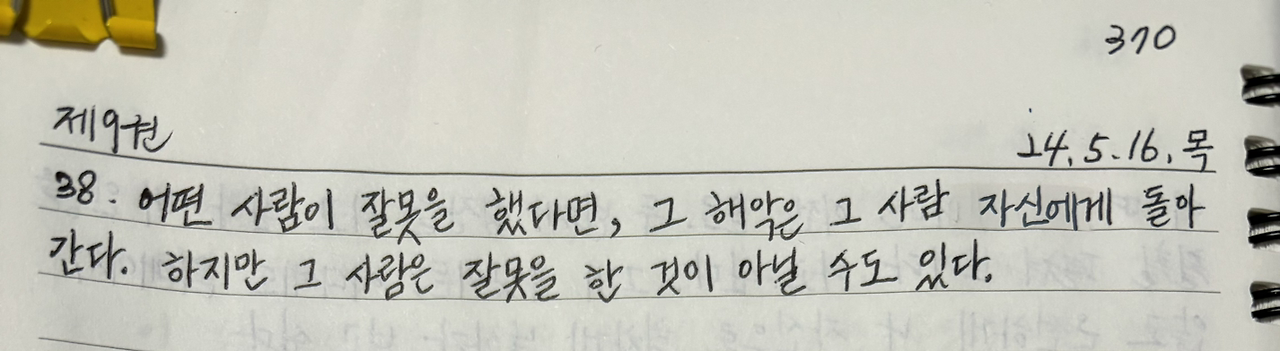 370
제9권
24.5.16.목
38. 어떤 사람이 잘못을 했다면, 그 해악은 그 사람 자신에게 돌아
간다. 하지만 그 사람은 잘못을 한 것이 아닐 수도 있다.